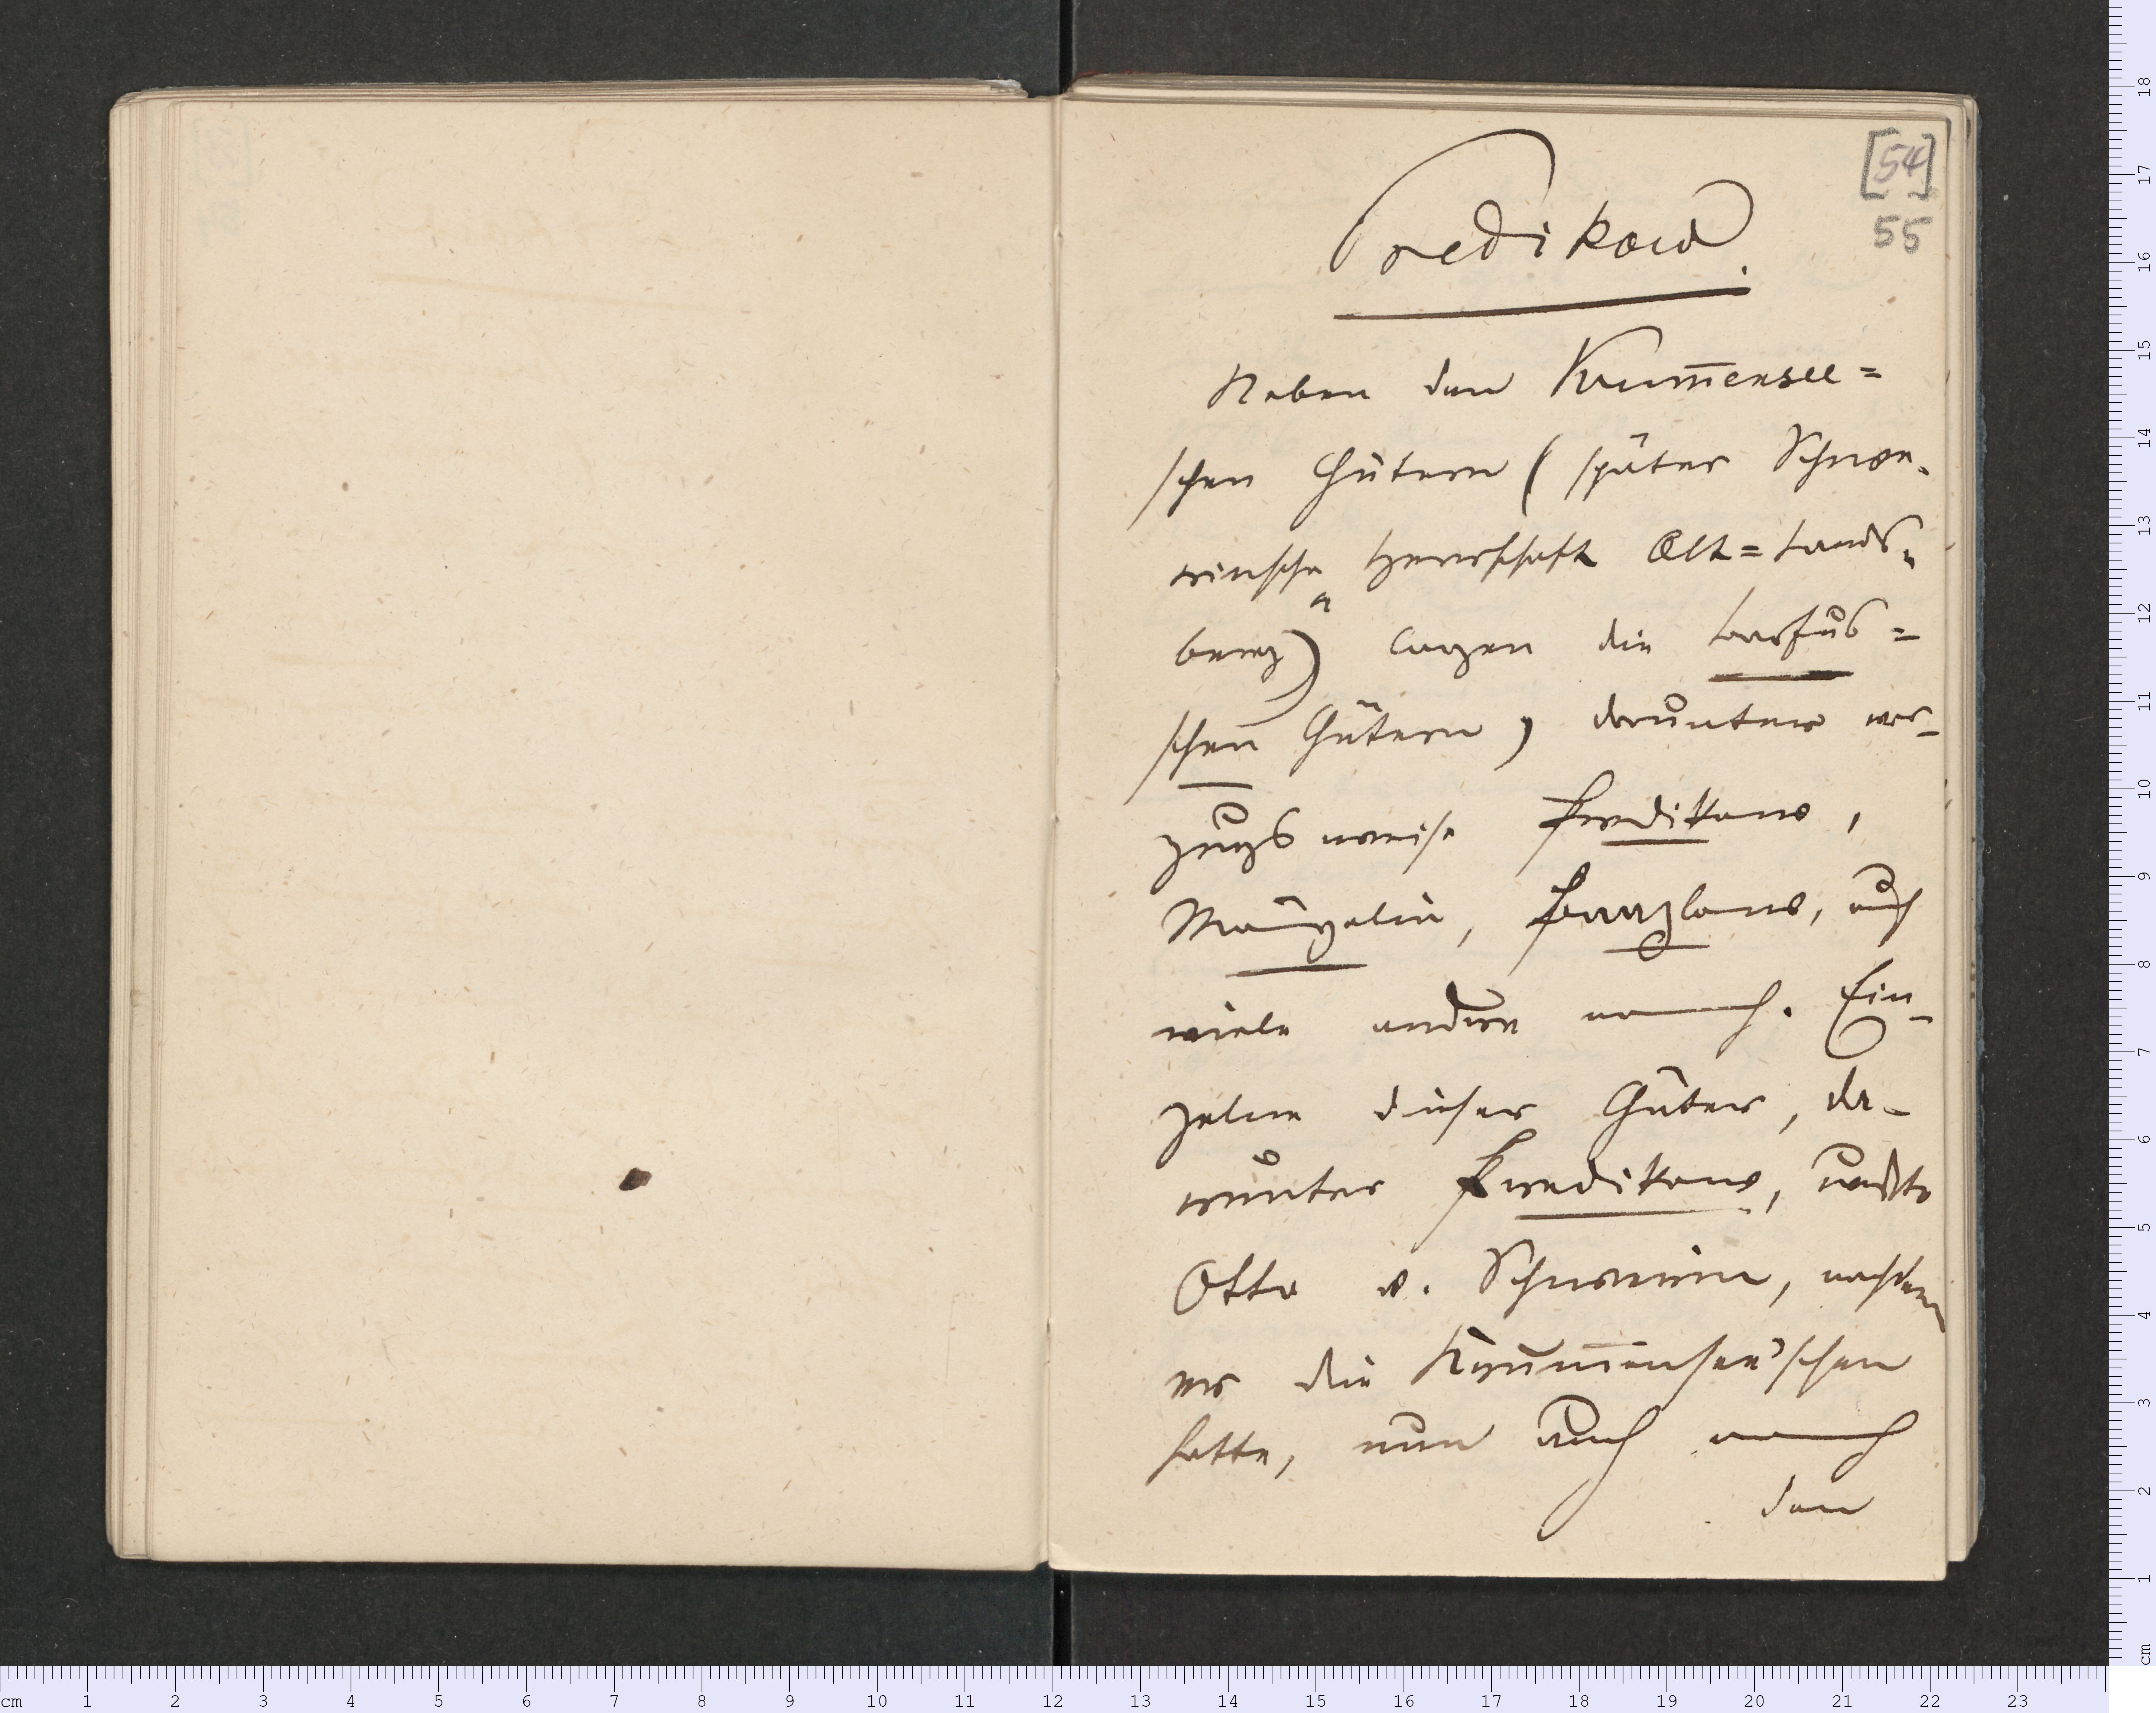 [54]
55
Predikow.
Neben den Krum̄ensee=
schen Gütern (später Schwe-
rinsche Herrschaft Alt=Lands-
berg) lagen die Barfus=
schen Gütern, darunter vor-
zugsweise Predikow,
Mögelin, Batzlow, auch
viele andre noch. Ein-
zelne dieser Güter, da-
runter Predikow, wußte
Otto v. Schwerin, nachdem
er die Krum̄ensee'schen
hatte, nun auch noch
den
cm 1 2 3 4 5 6 7 8 9 10 11 12 13 14 15 16 17 18 19 20 21 22 23
18
17
16
15
14
13
12
11
10
9
8
7
6
5
4
3
2
1
cm